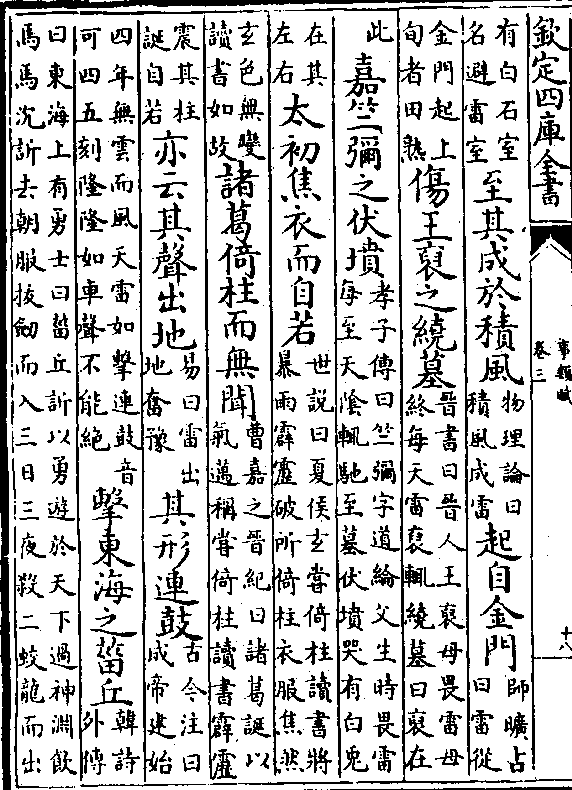 欽定四庫全書
事類賦
卷三
十八
有白石室名避雷室至其成於積風物理論曰積風成雷起自金門師曠占曰雷從
金門起上旬者田熟傷王裒之繞墓晉書曰晉人王裒母畏雷母終每天雷裒輒繞墓曰裒在
此嘉竺彌之伏墳孝子傳曰竺彌字道綸父生時畏雷每至天陰輒馳至墓伏墳哭有白兎
在其左右太初焦衣而自若世說曰夏侯玄嘗倚柱讀書將暴雨霹靂破所倚柱衣服焦然
玄色無變讀書如故諸葛倚柱而無聞曹嘉之晉紀曰諸葛誕以氣邁稱嘗倚柱讀書霹靂
震其柱誕自若亦云其聲出地易曰雷出地奮豫其形連鼓古今注曰成帝建始
四年無雲而風天雷如擊連鼓音可四五刻隆隆如車聲不能絕擊東海之菑丘韓詩外傳
曰東海上有勇士曰菑丘訢以勇遊於天下過神淵飲馬馬沉訢去朝服拔劒而入三日三夜殺二蛟龍而出